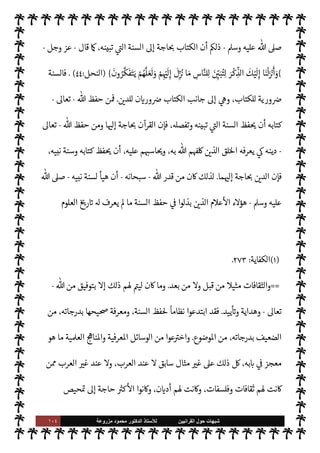 صلى الله عليه وسلم - ذكر أن الكتاب بحاجة إلى السنة التي تبينه، كما قال - عز وجل -
(وَأَنْزَلْنَا إِلَيْكَ الذِّكْرَ لِتُبَيِّنَ لِلنَّاسِ مَا نُزِّلَ إِلَيْهِمْ وَلَعَلَّهُمْ يَتَفَكَّرُونَ) (النحل:٤٤) . فالسنة
ضرورية للكتاب، وهي إلى جانب الكتاب ضروريان للدين، فمن حفظ الله - تعالى -
كتابه أن يحفظ السنة التي تبينه وتفصله، فإن القرآن بحاجة إليها ومن حفظ الله - تعالى
- دينه كي يعرفه الخلق الذين كلفهم الله به، ويحاسبهم عليه، أن يحفظ كتابه وسنة نبيه،
فإن الدين بحاجة إليهما. لذلك كان من قدر الله - سبحانه - أن هيأ لسنة نبيه - صلى الله
عليه وسلم - هؤلاء الأعلام الذين بذلوا في حفظ السنة ما لم يعرف له تاريخ العلوم
(١)الكفاية: ٢٧٣.
==والثقافات مثيلا من قبل ولا من بعد. وما كان ليتم لهم ذلك إلا بتوفيق من الله -
تعالى - وهداية وتأييد. فقد ابتدعوا نظاماً لحفظ السنة، ومعرفة صحيحها بدرجاته، من
الضعيف بدرجاته، من الموضوع. واخترعوا من الوسائل المعرفية والمناهج العلمية ما هو
معجز في بابه، كل ذلك على غير مثال سابق لا عند العرب، ولا عند غير العرب ممن
كانت لهم ثقافات وفلسفات، وكانت لهم أديان، وكانوا الأكثر حاجة إلى تمحيص
شبهات حول القرآنيين للأستاذ الدكتور محمود مزروعة ١٠٤